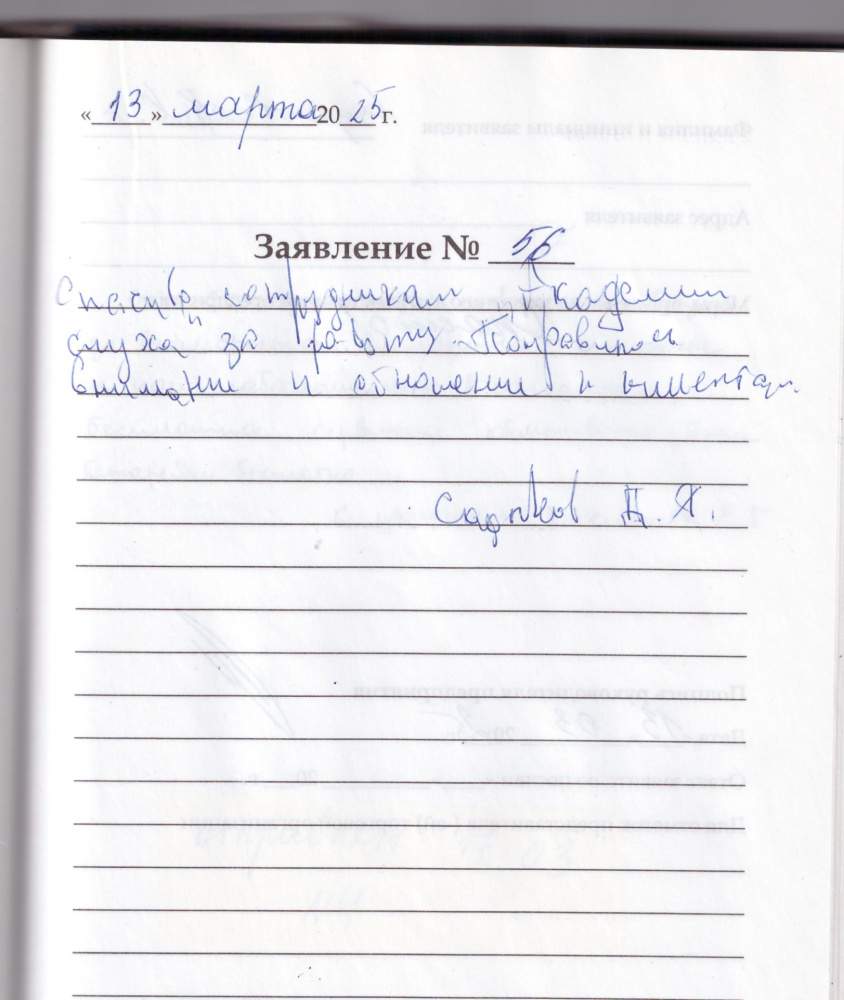 « 13 » марта 20 25 г.
Заявление № 56
Спасибо сотрудникам "Академии
слуха" за работу. Понравилось
внимание и отношение к клиентам.
Садыков Д. Я.